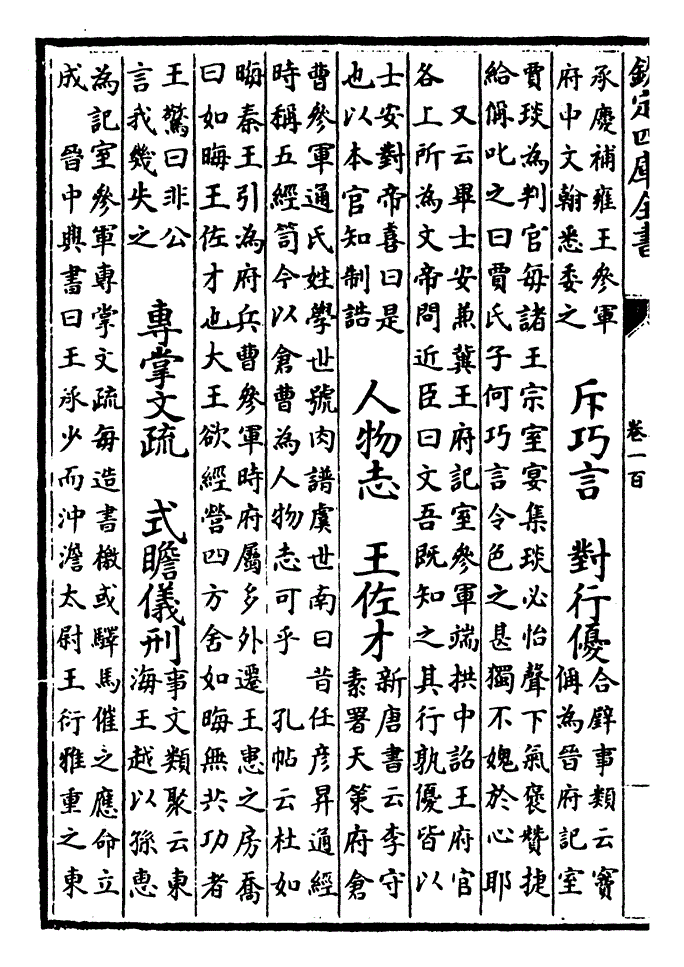 欽定四庫全書
卷一百
承慶補雍王參軍
府中文翰悉委之
斥巧言　對行優
合璧事類云竇
偁為晉府記室
賈琰為判官每諸王宗室宴集琰必怡聲下氣褒贊捷
給偁叱之曰賈氏子何巧言令色之甚獨不媿於心耶
又云畢士安兼冀王府記室參軍端拱中詔王府官
各上所為文帝問近臣曰文吾既知之其行孰優皆以
士安對帝喜曰是
也以本官知制誥
人物志　王佐才
新唐書云李守
素署天策府倉
曹參軍通氏姓學世號肉譜虞世南曰昔任彥昇通經
時稱五經笥今以倉曹為人物志可乎　孔帖云杜如
晦秦王引為府兵曹參軍時府屬多外遷王患之房喬
曰如晦王佐才也大王欲經營四方舍如晦無共功者
王驚曰非公
言我幾失之
專掌文疏　式瞻儀刑
事文類聚云東
海王越以孫惠
為記室參軍專掌文疏每造書檄或驛馬催之應命立
成　晉中興書曰王承少而沖澹太尉王衍雅重之東